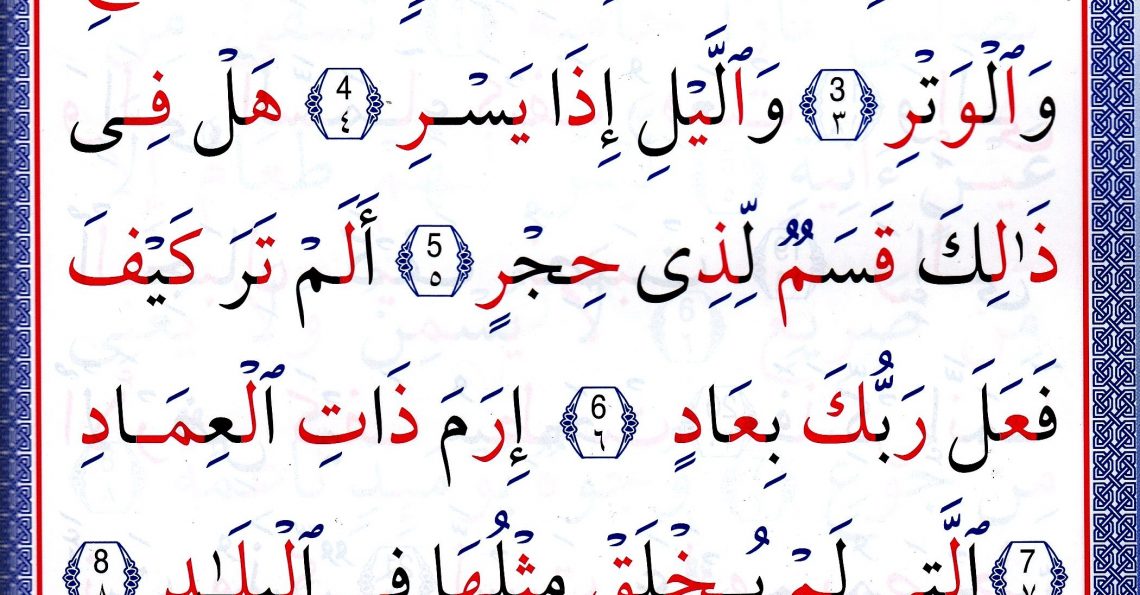 وَٱلْوَتْرِ 3 ٣ وَٱلَّيْلِ إِذَا يَسْرِ 4 ٤ هَلْ فِى
ذَٰلِكَ قَسَمٌ لِّذِى حِجْرٍ 5 ٥ أَلَمْ تَرَ كَيْفَ
فَعَلَ رَبُّكَ بِعَادٍ 6 ٦ إِرَمَ ذَاتِ ٱلْعِمَادِ
7 ٧ ٱلَّتِى لَمْ يُخْلَقْ مِثْلُهَا فِى ٱلْبِلَٰدِ 8 ٨